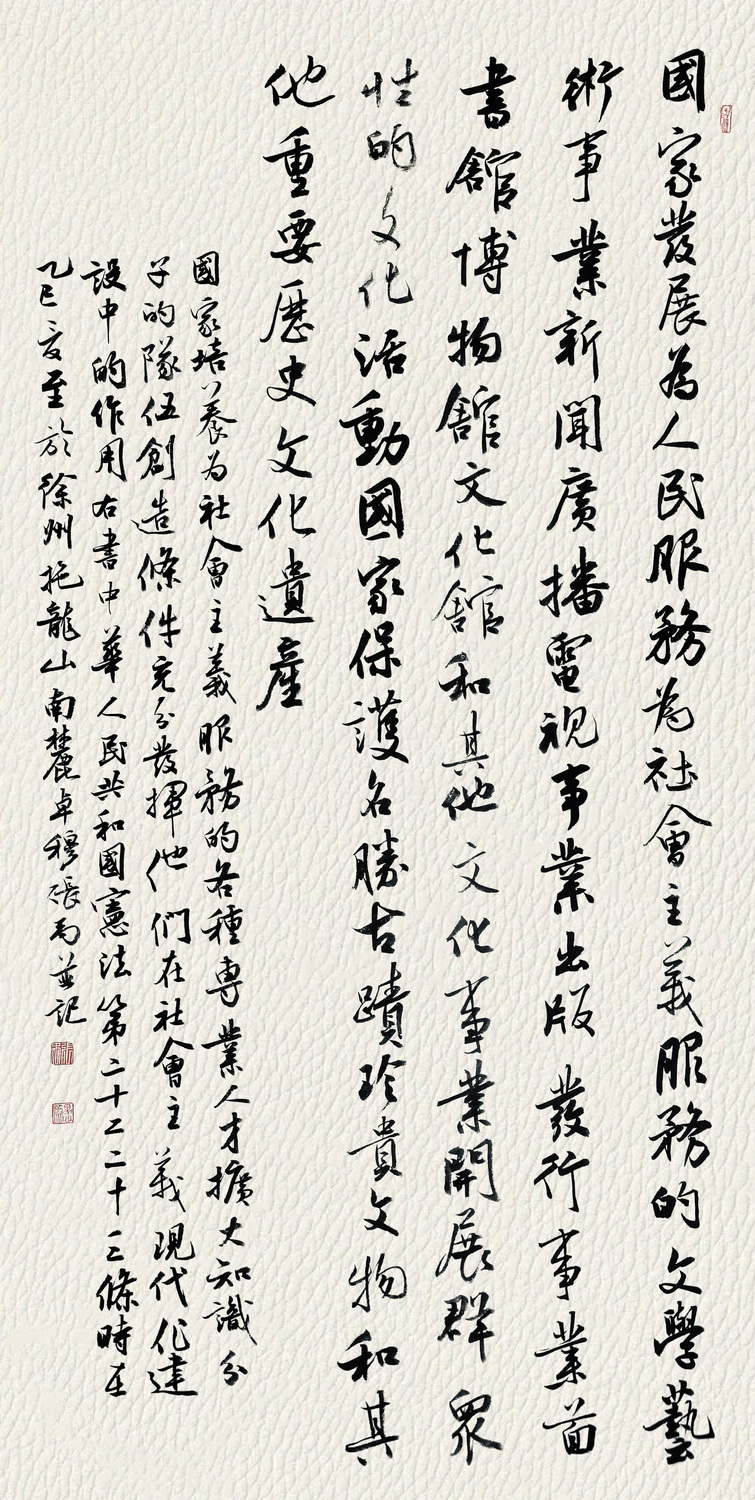 國家發展為人民服務為社會主義服務的文學藝
術事業新聞廣播電視事業出版發行事業啚
書館博物館文化館和其他文化事業開展群眾
性的文化活動國家保護名勝古蹟珍貴文物和其
他重要歷史文化遺產
國家培養為社會主義服務的各種專業人才擴大知識分
子的隊伍創造條件充分發揮他們在社會主義現代化建
設中的作用右書中華人民共和國憲法第二十二二十三條時在
乙巳夏至於徐州拖龍山南麓卓穆張雨並記